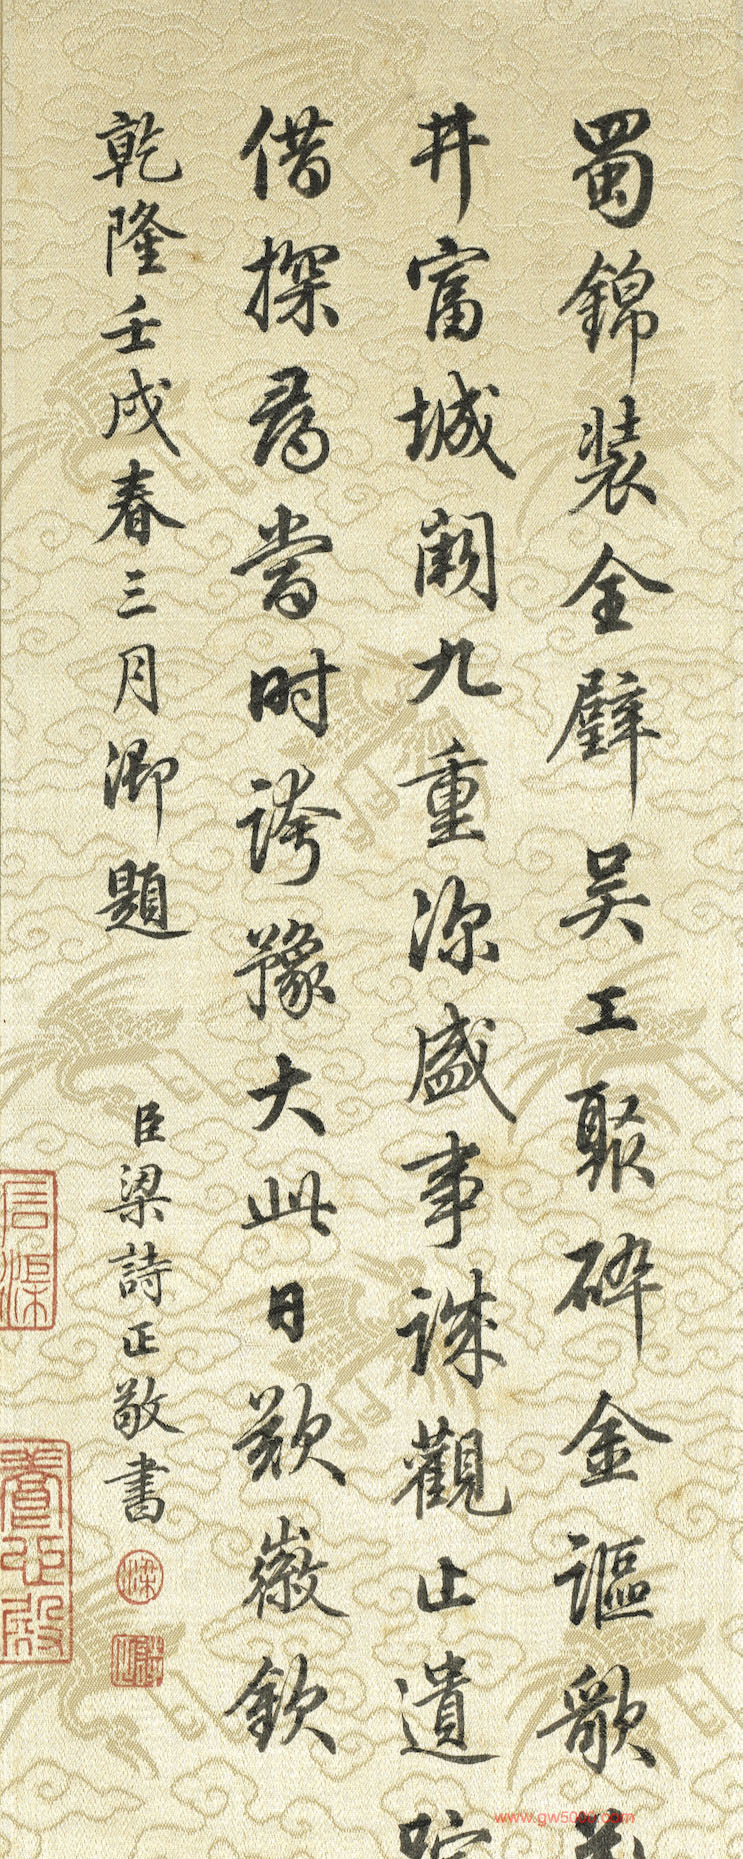 蜀錦裝全璧吳工聚碎金謳歌
井富城闕九重深盛事誠觀止遺
借探尋當時誇豫大此日歎徽欽
乾隆壬戌春三月御題
臣梁詩正敬書
www.gw5000.com